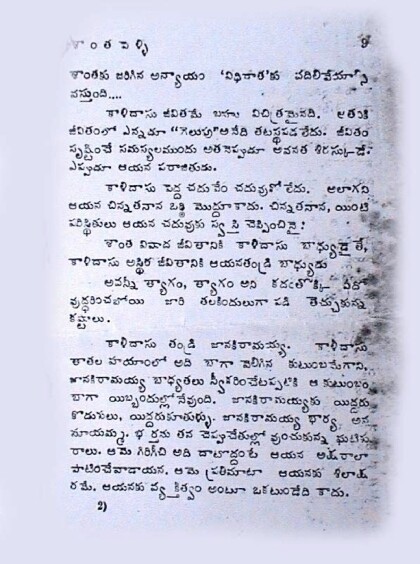 శాంత పెళ్ళి 9
శాంతకు జరిగిన అన్యాయం 'విధిరాత'కు వదిలివేయాల్సి
వస్తుంది....
కాళిదాసు జీవితమే బహు విచిత్రమైనది. అతని
జీవితంలో ఎన్నడూ "గెలుపు" అనేది తటస్థపడలేదు. జీవితం
సృష్టించే సమస్యలముందు అతనెప్పుడూ అవనత శిరస్కుడే.
ఎప్పుడూ ఆయన పరాజితుడు.
కాళిదాసు పెద్ద చదువేం చదువుకోలేదు. అలాగని
ఆయన చిన్నతనాన ఒఠ్ఠి మొద్దూకాదు. చిన్నతనాన, యింటి
పరిస్థితులు ఆయన చదువుకు స్వస్తి చెప్పించినై!
శాంత వివాహ జీవితానికి కాళిదాసు బాధ్యుడైతే,
కాళిదాసు అస్థిర జీవితానికి ఆయనతండ్రి బాధ్యుడు
అవన్నీ త్యాగం, త్యాగం అని కడుతొక్కి ఏదో
వుద్ధరించబోయి జారి తలక్రిందులుగా పడి తెచ్చుకున్న
కష్టాలు.
కాళిదాసు తండ్రి జానకిరామయ్య. కాళిదాసు
తాతల హయాంలో అది బాగా వెలిగిన కుటుంబమేగాని,
జానకిరామయ్య బాధ్యతలు స్వీకరించేటప్పటికి ఆ కుటుంబం
బాగా యిబ్బందుల్లోనేవుంది. జానకిరామయ్యకు యిద్దరు
కొడుకులు, యిద్దరుకూతుళ్ళు. జానకిరామయ్య భార్య అన
సూయమ్మ. భర్తను తన చెప్పుచేతుల్లో వుంచుకున్న ఘటికు
రాలు. ఆమె గిరిగీచి అది దాటొద్దంటే ఆయన అక్షరాలా
పాటించేవాడాయన. ఆమె ప్రతిమాటా ఆయనకు శిలాక్ష
రమే. ఆయనకు వ్యక్తిత్వం అంటూ ఒకటుండేది కాదు.
2)